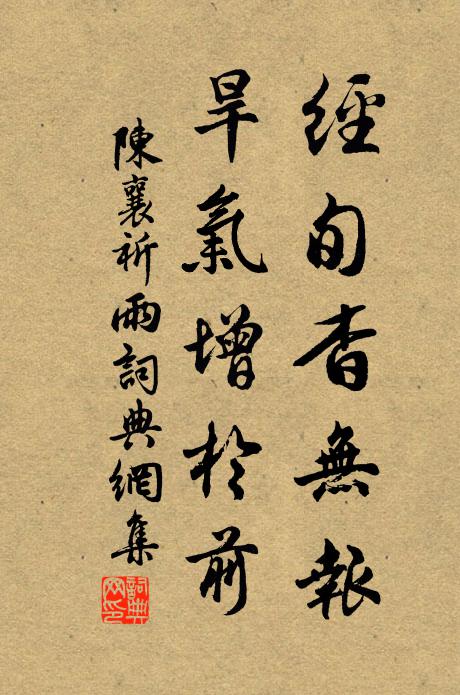 經旬杳無報
旱氣增於前
陳襄祈雨詞典網集
詞典網印